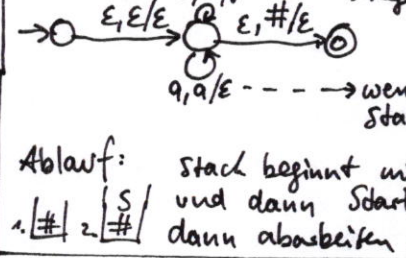 ε,ε/ε
ε,#/ε
a,a/ε - - - - → wen
Sta
Ablauf: Stack beginnt mi
und dann Start
1. # 2. S #
dann abarbeiten